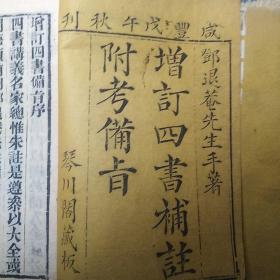 咸豐戊午秋刊
鄧退菴先生手著
增訂四書補註
附考備旨
琴川閣藏板
增訂四書備旨序
四書講義名家總惟朱註是遵叅以大全或